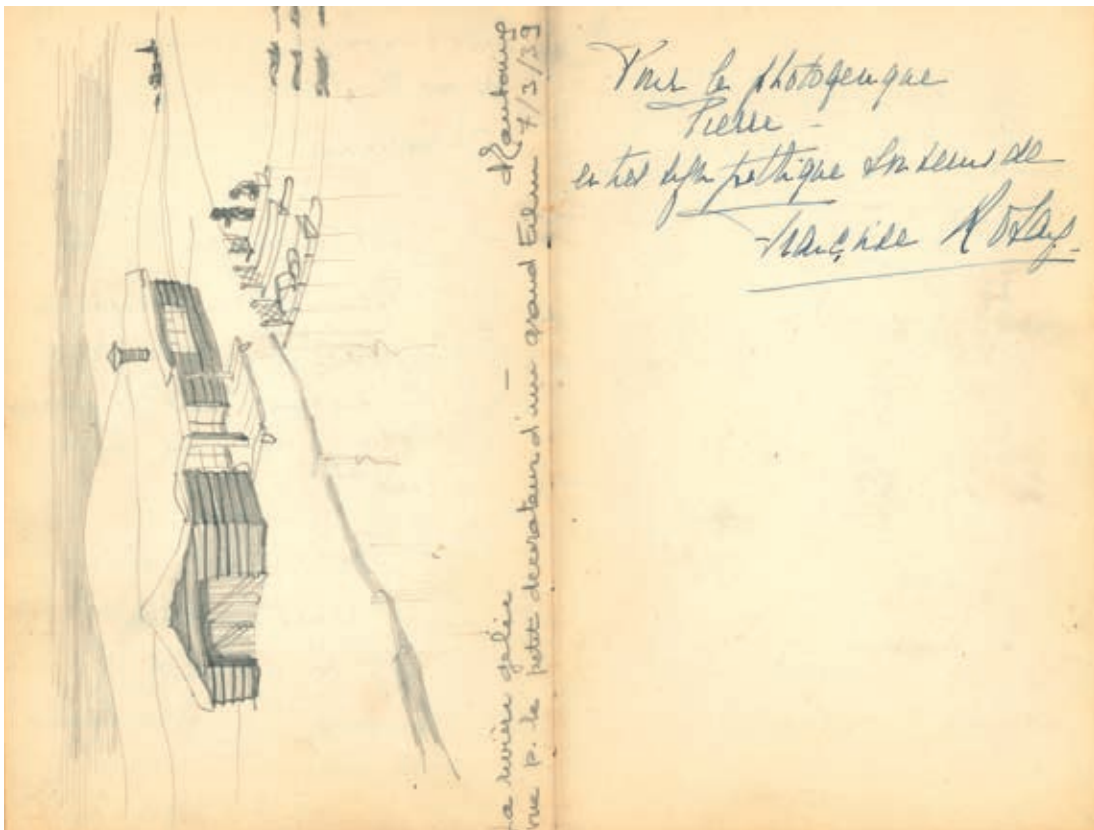 La rivière gelée
vue p. le petit décorateur d'un grand Film 7/3/39
Pour le photogenique
Pierre -
en très sympathique souvenir de
Françoise Rosay